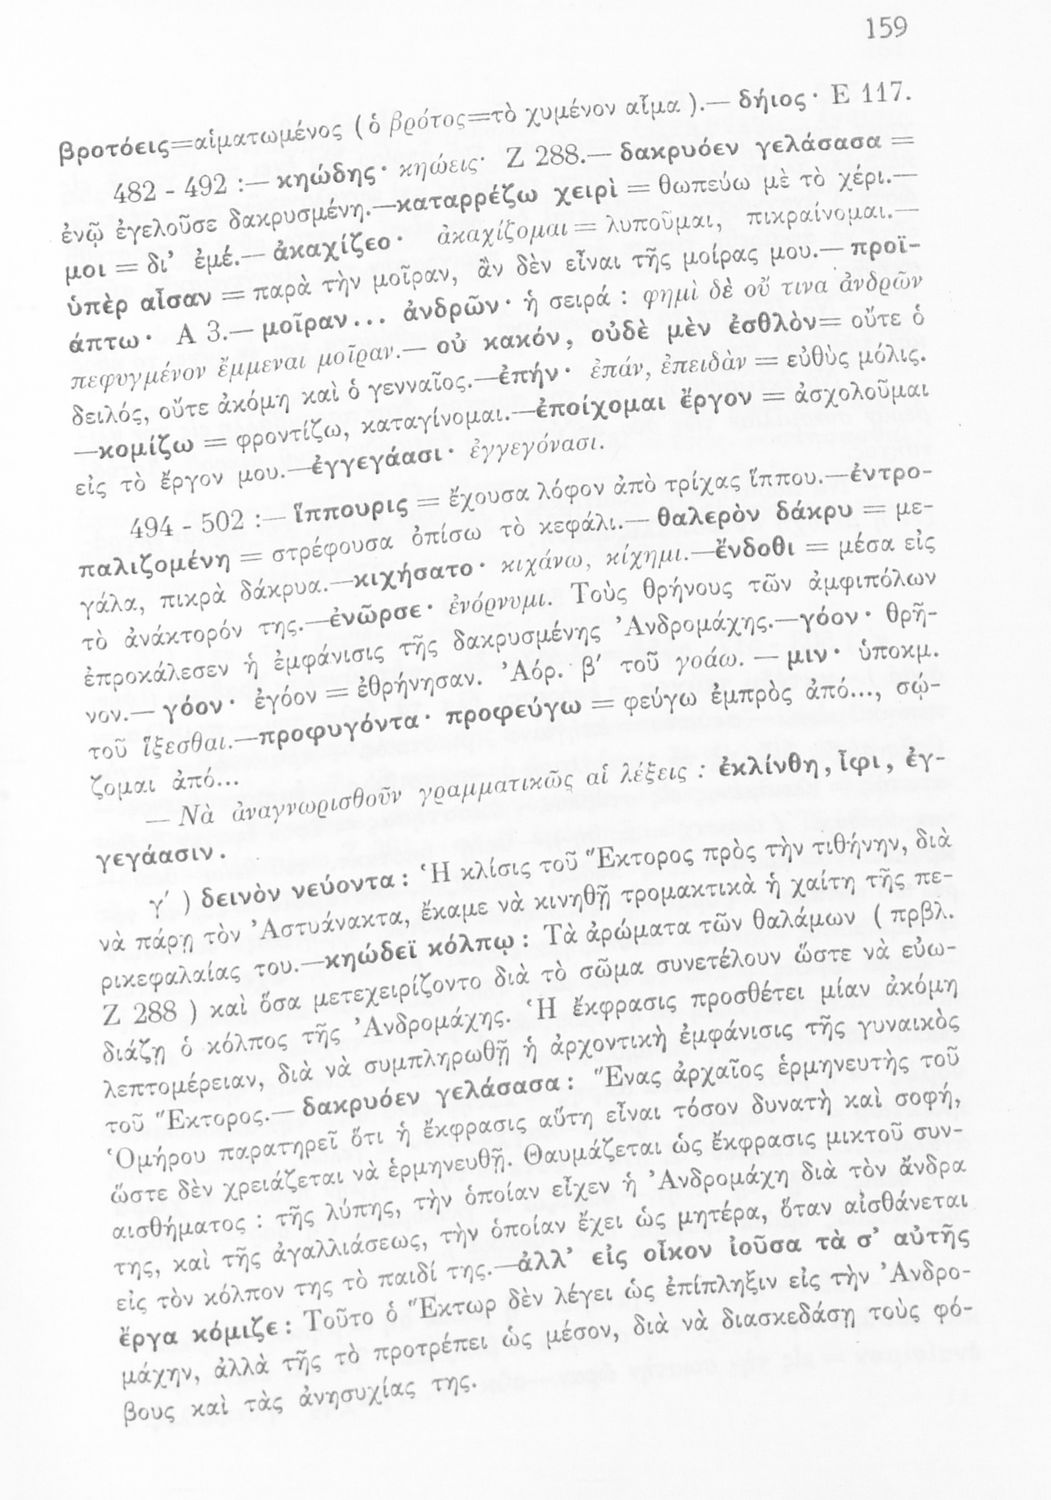 159
βροτόεις=αἱματωμένος (ὁ βρότος=τὸ χυμένον αἷμα ).— δήιος· Ε 117.
482 - 492 :— κηώδης· κηώεις· Ζ 288.— δακρυόεν γελάσασα =
ἐνῷ ἐγελοῦσε δακρυσμένη.—καταρρέζω χειρὶ = θωπεύω μὲ τὸ χέρι.—
μοι = δι' ἐμέ.— ἀκαχίζεο· ἀκαχίζομαι = λυποῦμαι, πικραίνομαι.—
ὑπὲρ αἶσαν = παρὰ τὴν μοῖραν, ἂν δὲν εἶναι τῆς μοίρας μου.— προϊ-
άπτω· Α 3.— μοῖραν... ἀνδρῶν· ἡ σειρά : φημὶ δὲ οὔ τινα ἀνδρῶν
πεφυγμένον ἔμμεναι μοῖραν.— οὐ κακόν, οὐδὲ μὲν ἐσθλὸν= οὔτε ὁ
δειλός, οὔτε ἀκόμη καὶ ὁ γενναῖος.—ἐπήν· ἐπάν, ἐπειδὰν = εὐθὺς μόλις.
—κομίζω = φροντίζω, καταγίνομαι.—ἐποίχομαι ἔργον = ἀσχολοῦμαι
εἰς τὸ ἔργον μου.—ἐγγεγάασι· ἐγγεγόνασι.
494 - 502 :— ἵππουρις = ἔχουσα λόφον ἀπὸ τρίχας ἵππου.—ἐντρο-
παλιζομένη = στρέφουσα ὀπίσω τὸ κεφάλι.— θαλερὸν δάκρυ = με-
γάλα, πικρὰ δάκρυα.—κιχήσατο· κιχάνω, κίχημι.—ἔνδοθι = μέσα εἰς
τὸ ἀνάκτορόν της.—ἐνῶρσε· ἐνόρνυμι. Τοὺς θρήνους τῶν ἀμφιπόλων
ἐπροκάλεσεν ἡ ἐμφάνισις τῆς δακρυσμένης Ἀνδρομάχης.—γόον· θρῆ-
νον.— γόον· ἐγόον = ἐθρήνησαν. Ἀόρ. β' τοῦ γοάω. — μιν· ὑποκμ.
τοῦ ἵξεσθαι.—προφυγόντα· προφεύγω = φεύγω ἐμπρὸς ἀπό..., σῴ-
ζομαι ἀπό...
— Νὰ ἀναγνωρισθοῦν γραμματικῶς αἱ λέξεις : ἐκλίνθη, ἶφι, ἐγ-
γεγάασιν.
γ' ) δεινὸν νεύοντα : Ἡ κλίσις τοῦ Ἕκτορος πρὸς τὴν τιθήνην, διὰ
νὰ πάρῃ τὸν Ἀστυάνακτα, ἔκαμε νὰ κινηθῇ τρομακτικὰ ἡ χαίτη τῆς πε-
ρικεφαλαίας του.—κηώδεϊ κόλπῳ : Τὰ ἀρώματα τῶν θαλάμων ( πρβλ.
Ζ 288 ) καὶ ὅσα μετεχειρίζοντο διὰ τὸ σῶμα συνετέλουν ὥστε νὰ εὐω-
διάζῃ ὁ κόλπος τῆς Ἀνδρομάχης. Ἡ ἔκφρασις προσθέτει μίαν ἀκόμη
λεπτομέρειαν, διὰ νὰ συμπληρωθῇ ἡ ἀρχοντικὴ ἐμφάνισις τῆς γυναικὸς
τοῦ Ἕκτορος.— δακρυόεν γελάσασα : Ἕνας ἀρχαῖος ἑρμηνευτὴς τοῦ
Ὁμήρου παρατηρεῖ ὅτι ἡ ἔκφρασις αὕτη εἶναι τόσον δυνατὴ καὶ σοφή,
ὥστε δὲν χρειάζεται νὰ ἑρμηνευθῇ. Θαυμάζεται ὡς ἔκφρασις μικτοῦ συν-
αισθήματος : τῆς λύπης, τὴν ὁποίαν εἶχεν ἡ Ἀνδρομάχη διὰ τὸν ἄνδρα
της, καὶ τῆς ἀγαλλιάσεως, τὴν ὁποίαν ἔχει ὡς μητέρα, ὅταν αἰσθάνεται
εἰς τὸν κόλπον της τὸ παιδί της.—ἀλλ' εἰς οἶκον ἰοῦσα τὰ σ' αὐτῆς
ἔργα κόμιζε : Τοῦτο ὁ Ἕκτωρ δὲν λέγει ὡς ἐπίπληξιν εἰς τὴν Ἀνδρο-
μάχην, ἀλλὰ τῆς τὸ προτρέπει ὡς μέσον, διὰ νὰ διασκεδάσῃ τοὺς φό-
βους καὶ τὰς ἀνησυχίας της.